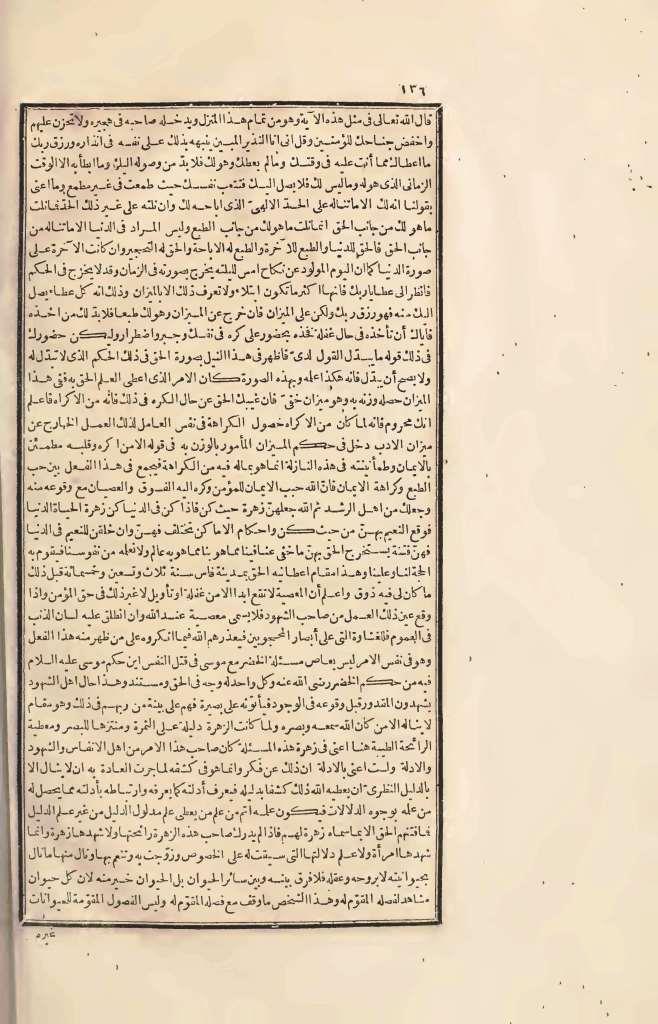 ١٣٦
قال الله تعالى فى مثل هذه الآية وهو من تمام هذا المنزل ويدخله صاحبه فى هجيره ولا تحزن عليهم
واخفض جناحك للمؤمنين وقل انى انا النذير المبين ينبهه بذلك على نفسه فى انذاره ورزق ربك
ما اعطاك مما أنت عليه فى وقتك ومالم يعطك وهو لك فلا بد من وصوله اليك وما ابطأ به الا الوقت
الزمانى الذى هو له وما ليس لك فلا يصل اليك فتتعب نفسك حيث طمعت فى غير مطمع وما اعنى
بقولنا انه لك الا ما تناله على الحد الالهىّ الذى اباحه لك وان نلته على غير ذلك الحد فما نلت
ما هو لك من جانب الحق انما نلت ما هو لك من جانب الطبع وليس المراد فى الدنيا الا ما تناله من
جانب الحق فالحق للدنيا والطبع للآخرة والطبع له الاباحة والحق له التحجير وان كانت الآخرة على
صورة الدنيا كما ان اليوم المولود عن نكاح امس للبلته يخرج بصورته فى الزمان وقد لا يخرج فى الحكم
فانظر الى عطايا ربك فانها اكثر ما تكون ابتلاء ولا تعرف ذلك الا بالميزان وذلك انه كل عطاء يصل
اليك منه فهو رزق ربك ولكن على الميزان فان خرج عن الميزان وهو لك طبعا فلا بد لك من اخذه
فاياك أن تأخذه فى حال غفلة فخذه بحضور على كره فى نفسك وجبر واضطرار وليكن حضورك
فى ذلك قوله ما يبدّل القول لدىّ فاظهر فى هذا النيل بصورة الحق فى ذلك الحكم الذى لا تبدّل له
ولا يصح أن يبدّل فانه هكذا علمه وبهذه الصورة كان الامر الذى اعطى العلم الحق به فتى هذا
الميزان حصله وزنه به وهو ميزان خفىّ فان غيبك الحق عن حال الكره فى ذلك فانه من الاكراه فاعلم
انك محروم فانه لما كان من الاكراه حصول الكراهة فى نفس العامل لذلك العمل الخارج عن
ميزان الادب دخل فى حكم الميزان المأمور بالوزن به فى قوله الا من اكره وقلبه مطمئن
بالايمان وطمأنينته فى هذه النازلة انما هو بما له فيه من الكراهة فيجمع فى هذا الفعل بين حب
الطبع وكراهة الايمان فان الله حبب الايمان للمؤمن وكره اليه الفسوق والعصيان مع وقوعه منه
وجعلك من اهل الرشد ثم الله جعلهنّ زهرة حيث كن فاذا كن فى الدنيا كن زهرة الحياة الدنيا
فوقع النعيم بهنّ من حيث كن واحكام الاماكن تختلف فهنّ وان خلقن للنعيم فى الدنيا
فهنّ فتنة يستخرج الحق بهنّ ما خفى عنا فينا مما هو بنا مما هو به عالم ولا نعلمه من نفوسنا فيقوم به
الحجة لنا وعلينا وهذا مقام اعطانيه الحق بمدينة فاس سنة ثلاث وتسعين وخمسمائة قبل ذلك
ما كان لى فيه ذوق واعلم أن المعصية لا تقع ابدا الا من غفلة او تأويل لا غير ذلك فى حق المؤمن واذا
وقع عين ذلك العمل من صاحب الشهود فلا يسمى معصية عند الله وان انطلق عليه لسان الذنب
فى العموم فللغشاوة التى على أبصار المحجوبين فيعذرهم الله فيما انكروه على من ظهر منه هذا الفعل
وهو فى نفس الامر ليس بعاص مسئلة الخضر مع موسى فى قتل النفس اين حكم موسى عليه السلام
فيه من حكم الخضر رضى الله عنه وكل واحد له وجه فى الحق ومستند وهذا حال اهل الشهود
يشهدون المقدور قبل وقوعه فى الوجود فيأتونه على بصيرة فهم على بينة من ربهم فى ذلك وهو مقام
لا يناله الا من كان الله سمعه وبصره ولما كانت الزهرة دليلة على الثمرة ومنتزها للبصر ومعطية
الرائحة الطيبة هنا اعنى فى زهرة هذه المسئلة كان صاحب هذا الامر من اهل الانفاس والشهود
والادلة ولست اعنى بالادلة ان ذلك عن فكر وانما هو فى كشفه لما جرت العادة به ان لا ينال الا
بالدليل النظرىّ ان يعطيه الله ذلك كشفا بدليله فيعرف أدلته كما يعرفه وارتباطه بأدلته مما يحصل له
من علمه بوجوه الدلالات فيكون علمه أتم من علم من يعطى علم مدلول الدليل من غير علم الدليل
فما فتنهم الحق الا بما سماه زهرة لهم فاذا لم يدرك صاحب هذه الزهرة رائحتها ولا شهدها زهرة وانما
شهدها امرأة ولا علم دلالتها التى سيقت له على الخصوص وزوّجت به وتنعم بها ونال منها ما نال
بحيوانيته لا بروحه وعقله فلا فرق بينه وبين سائر الحيوان بل الحيوان خير منه لان كل حيوان
مشاهد لفصله المقوّم له وهذا الشخص ما وقف مع فصله المقوّم له وليس الفصول المقوّمة للحيوانات
غيره